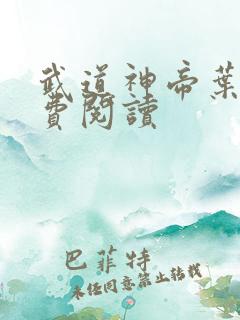 武道神帝葉
費閱讀
巴菲特
未经同意禁止转载